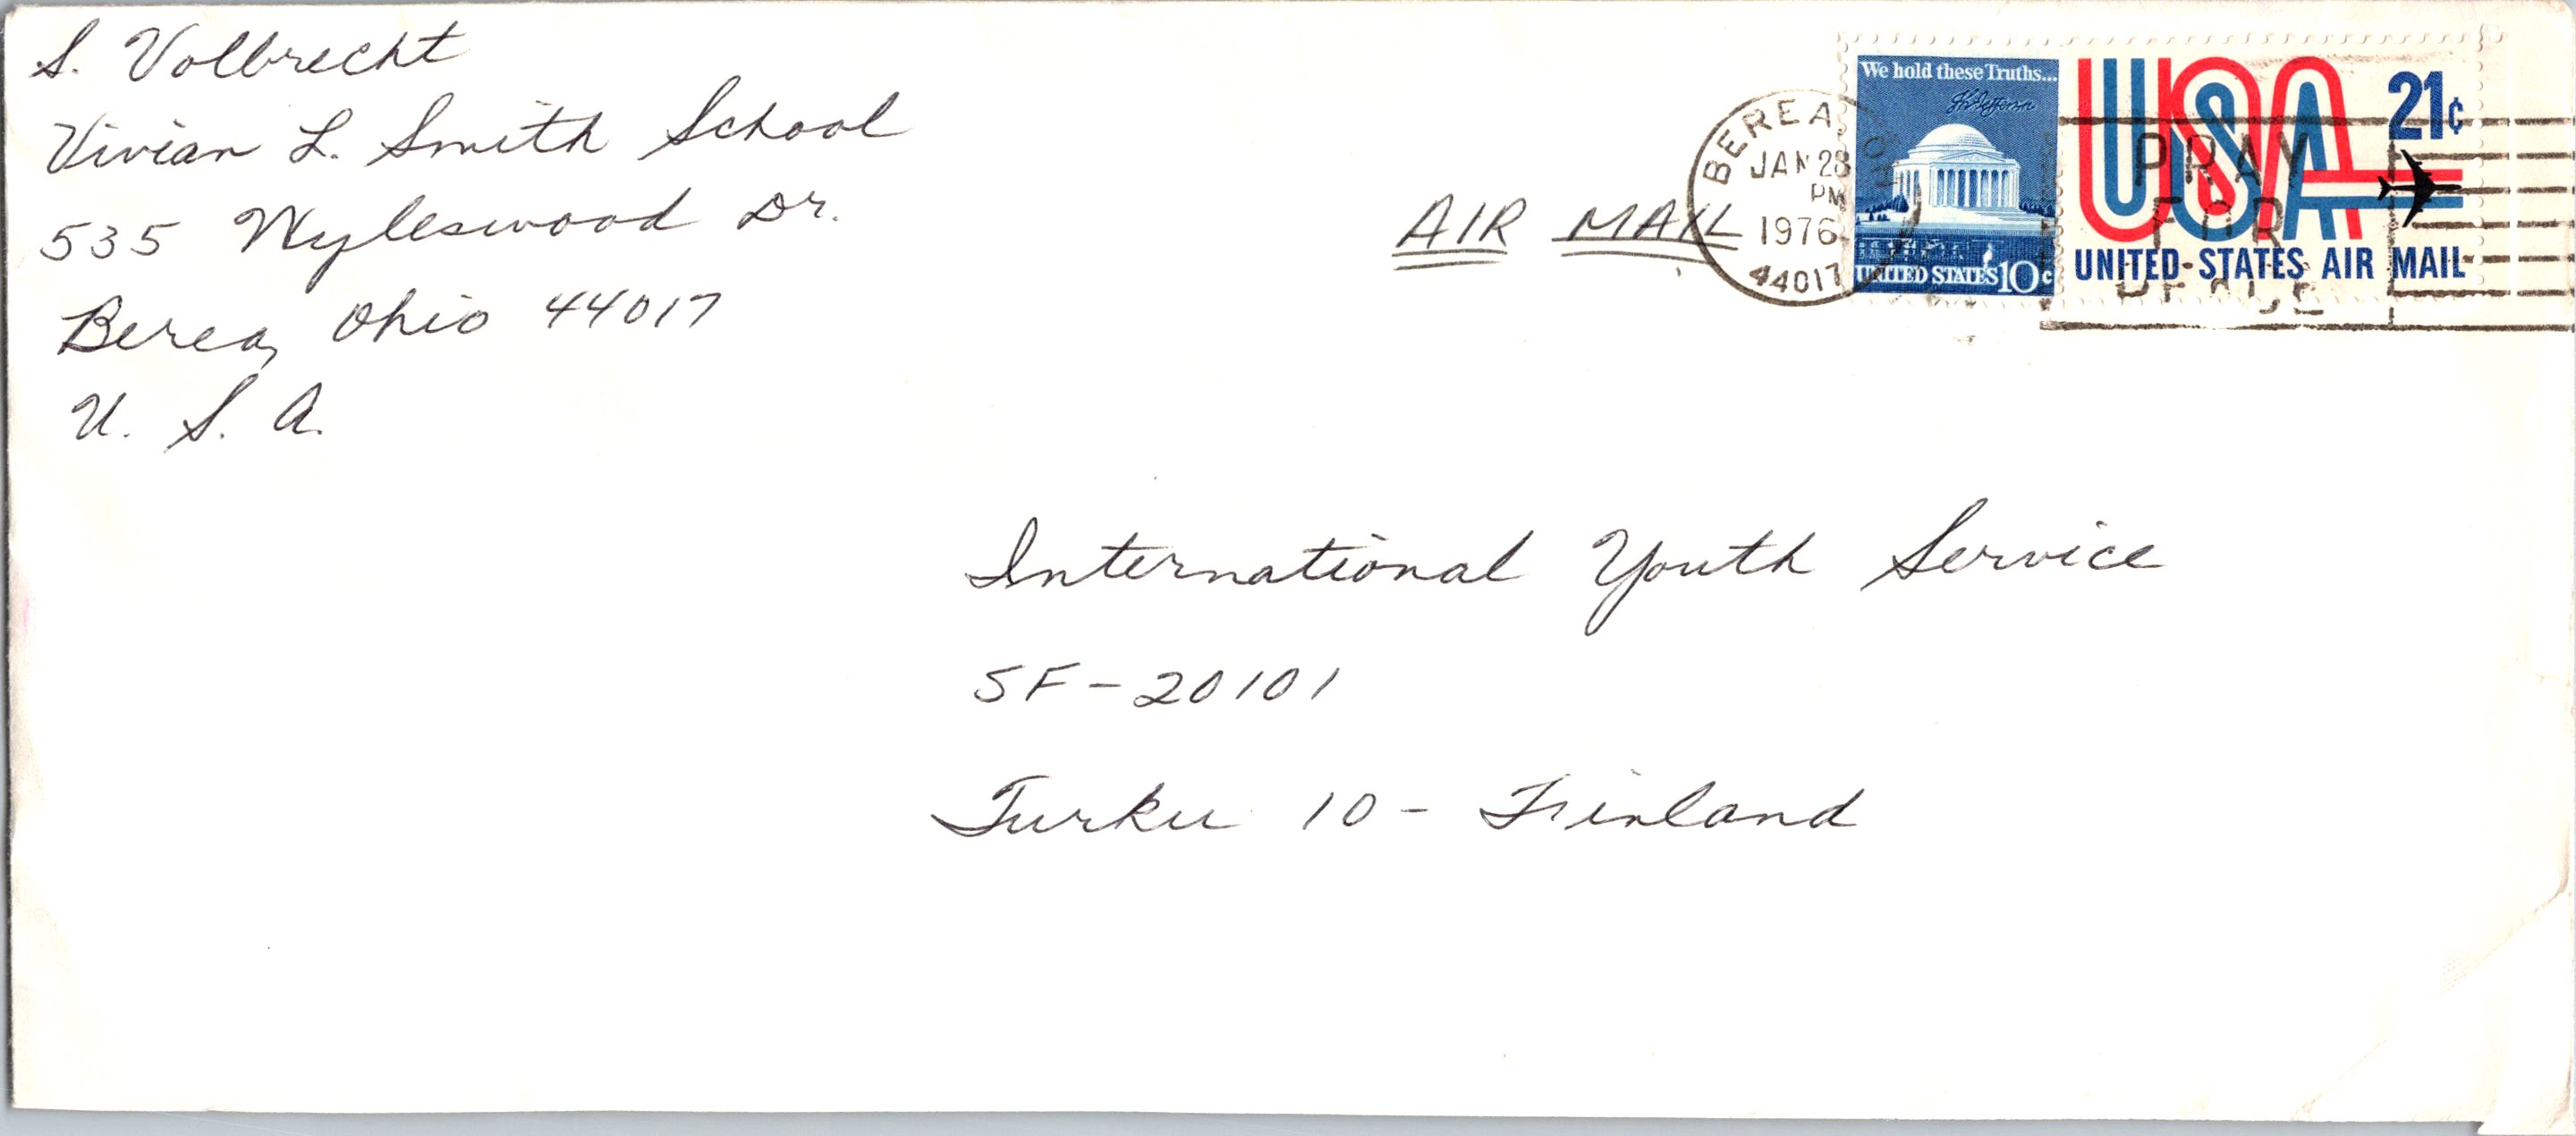 S. Volbrecht
Vivian L. Smith School
535 Wyleswood Dr.
Berea, Ohio 44017
U. S. A.
AIR MAIL
BEREA, OH
JAN 28
PM
1976
44017
We hold these Truths...
Th Jefferson
UNITED STATES 10c
USA
21¢
UNITED STATES AIR MAIL
PRAY
FOR
PEACE
International Youth Service
SF-20101
Turku 10 - Finland